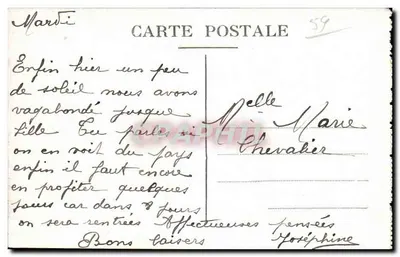 Mardi
59
CARTE POSTALE
Enfin hier un peu
de soleil nous avons
vagabondé jusque
Lille Tu parles si
on en voit du pays
enfin il faut encore
en profiter quelques
jours car dans 8 jours
on sera rentrées Affectueuses pensées
Bons baisers Joséphine
Melle Marie
Chevalier